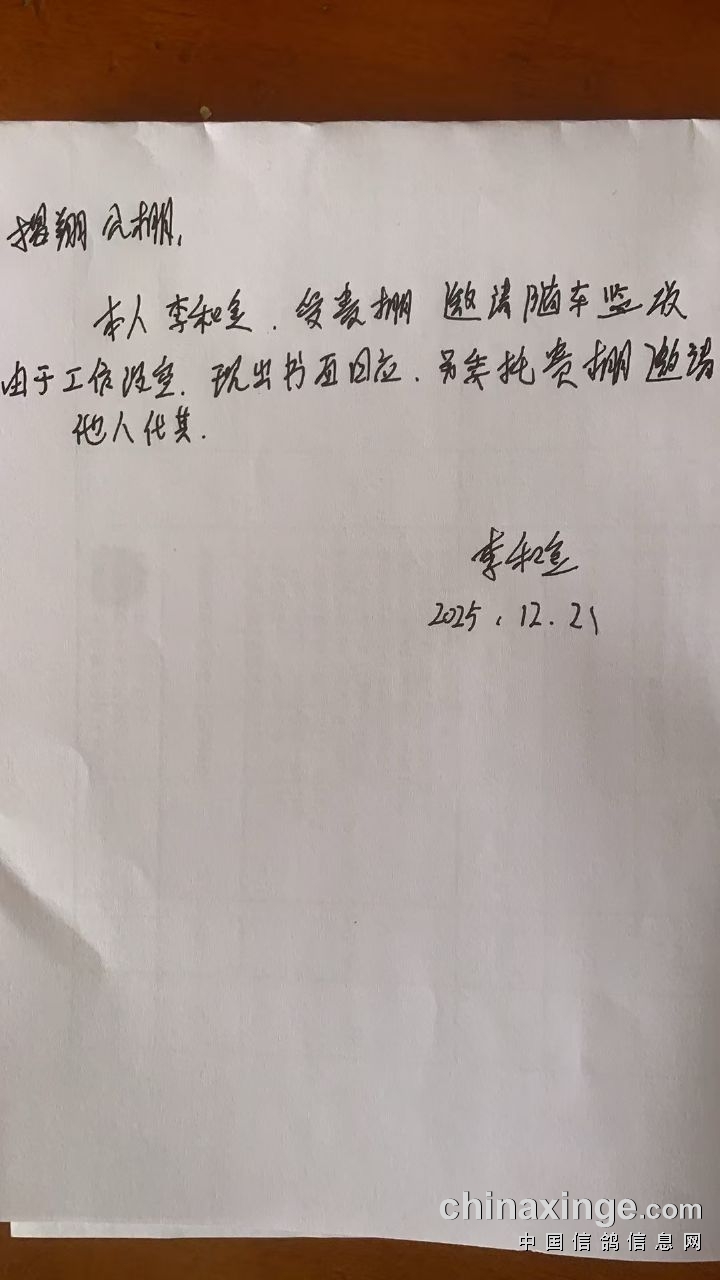 翔公棚,
本人李和 . 受贵棚邀请随车监放
由于工作 . 现出书面回应. 另委托贵棚邀请
他人代其.
李和
2025.12.21
chinaxinge.com
中国信鸽信息网